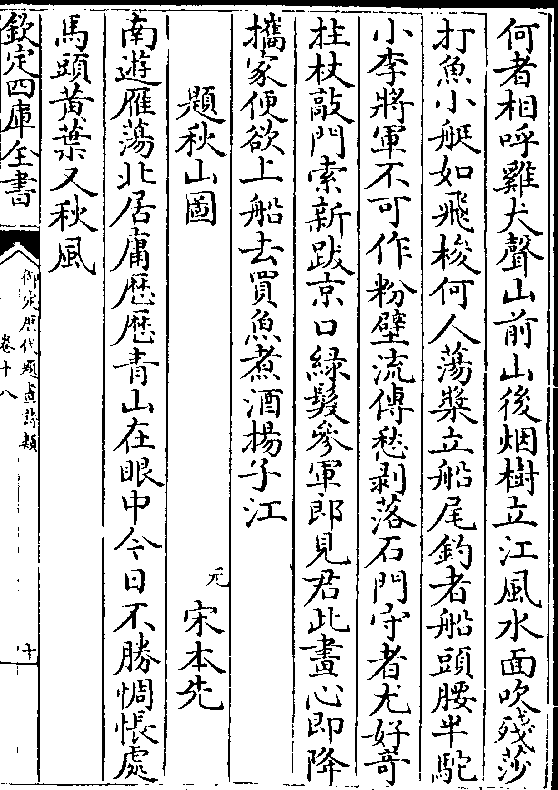 何者相呼雞犬聲山前山後烟樹立江風水面吹殘莎
打魚小艇如飛梭何人蕩槳立船尾釣者船頭腰半駝
小李將軍不可作粉壁流傳愁剥落石門守者尤好竒
拄杖敲門索新跋京口緑髮參軍郎見君此畫心即降
攜家便欲上船去買魚煮酒揚子江
題秋山圖
元 宋本先
南遊雁蕩北居庸歴歴青山在眼中今日不勝惆悵處
馬頭黄葉又秋風
欽定四庫全書
御定歴代題畫詩類
卷十八
十